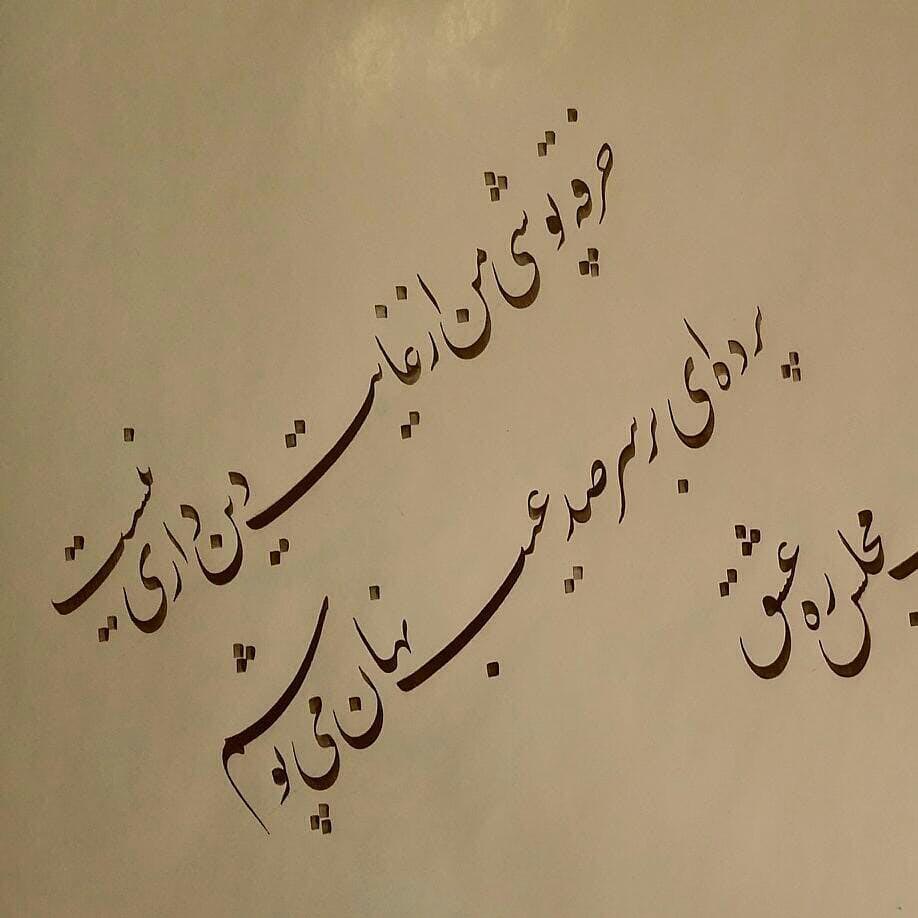 خرقه پوشی من از غایت دین داری نیست
پرده‌ای بر سر صد عیب نهان می پوشم
مجلس ره عشق